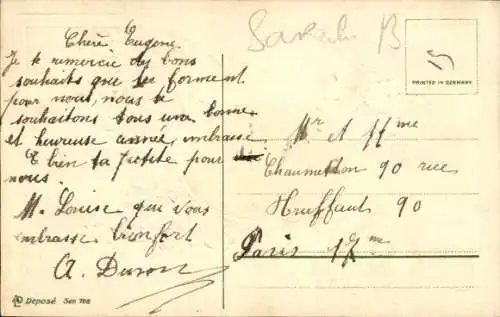 Chère Eugene
Je te remercie des bons
souhaits que te forment
pour nous, nous te
souhaitons tous une bonne
et heureuse année, embrasse
bien ta petite pour
nous.
M. Louise qui vous
embrasse bienfort
A. Duron
Deposé Ser. 768
B
15
PRINTED IN GERMANY
Mr et Mme
Chaumetton 90 rue
Hruffaut 90
Paris 15me